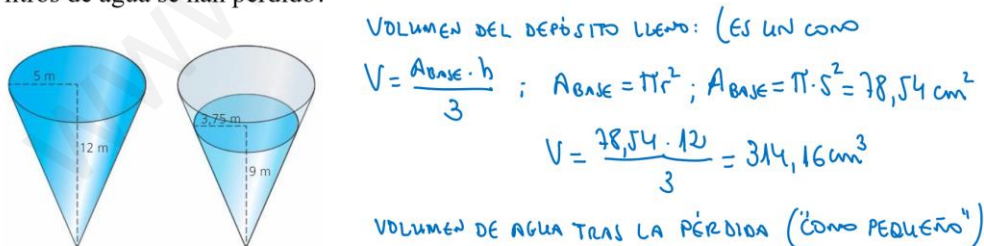 ntros de agua se han perdido?
VOLUMEN DEL DEPÓSITO LLENO: (ES UN CONO
V = ABASE · h / 3 ; ABASE = πr² ; ABASE = π·5² = 78,54 cm²
V = 78,54 · 12 / 3 = 314,16 cm³
VOLUMEN DE AGUA TRAS LA PÉRDIDA ("CONO PEQUEÑO")
5 m
12 m
3,75 m
9 m